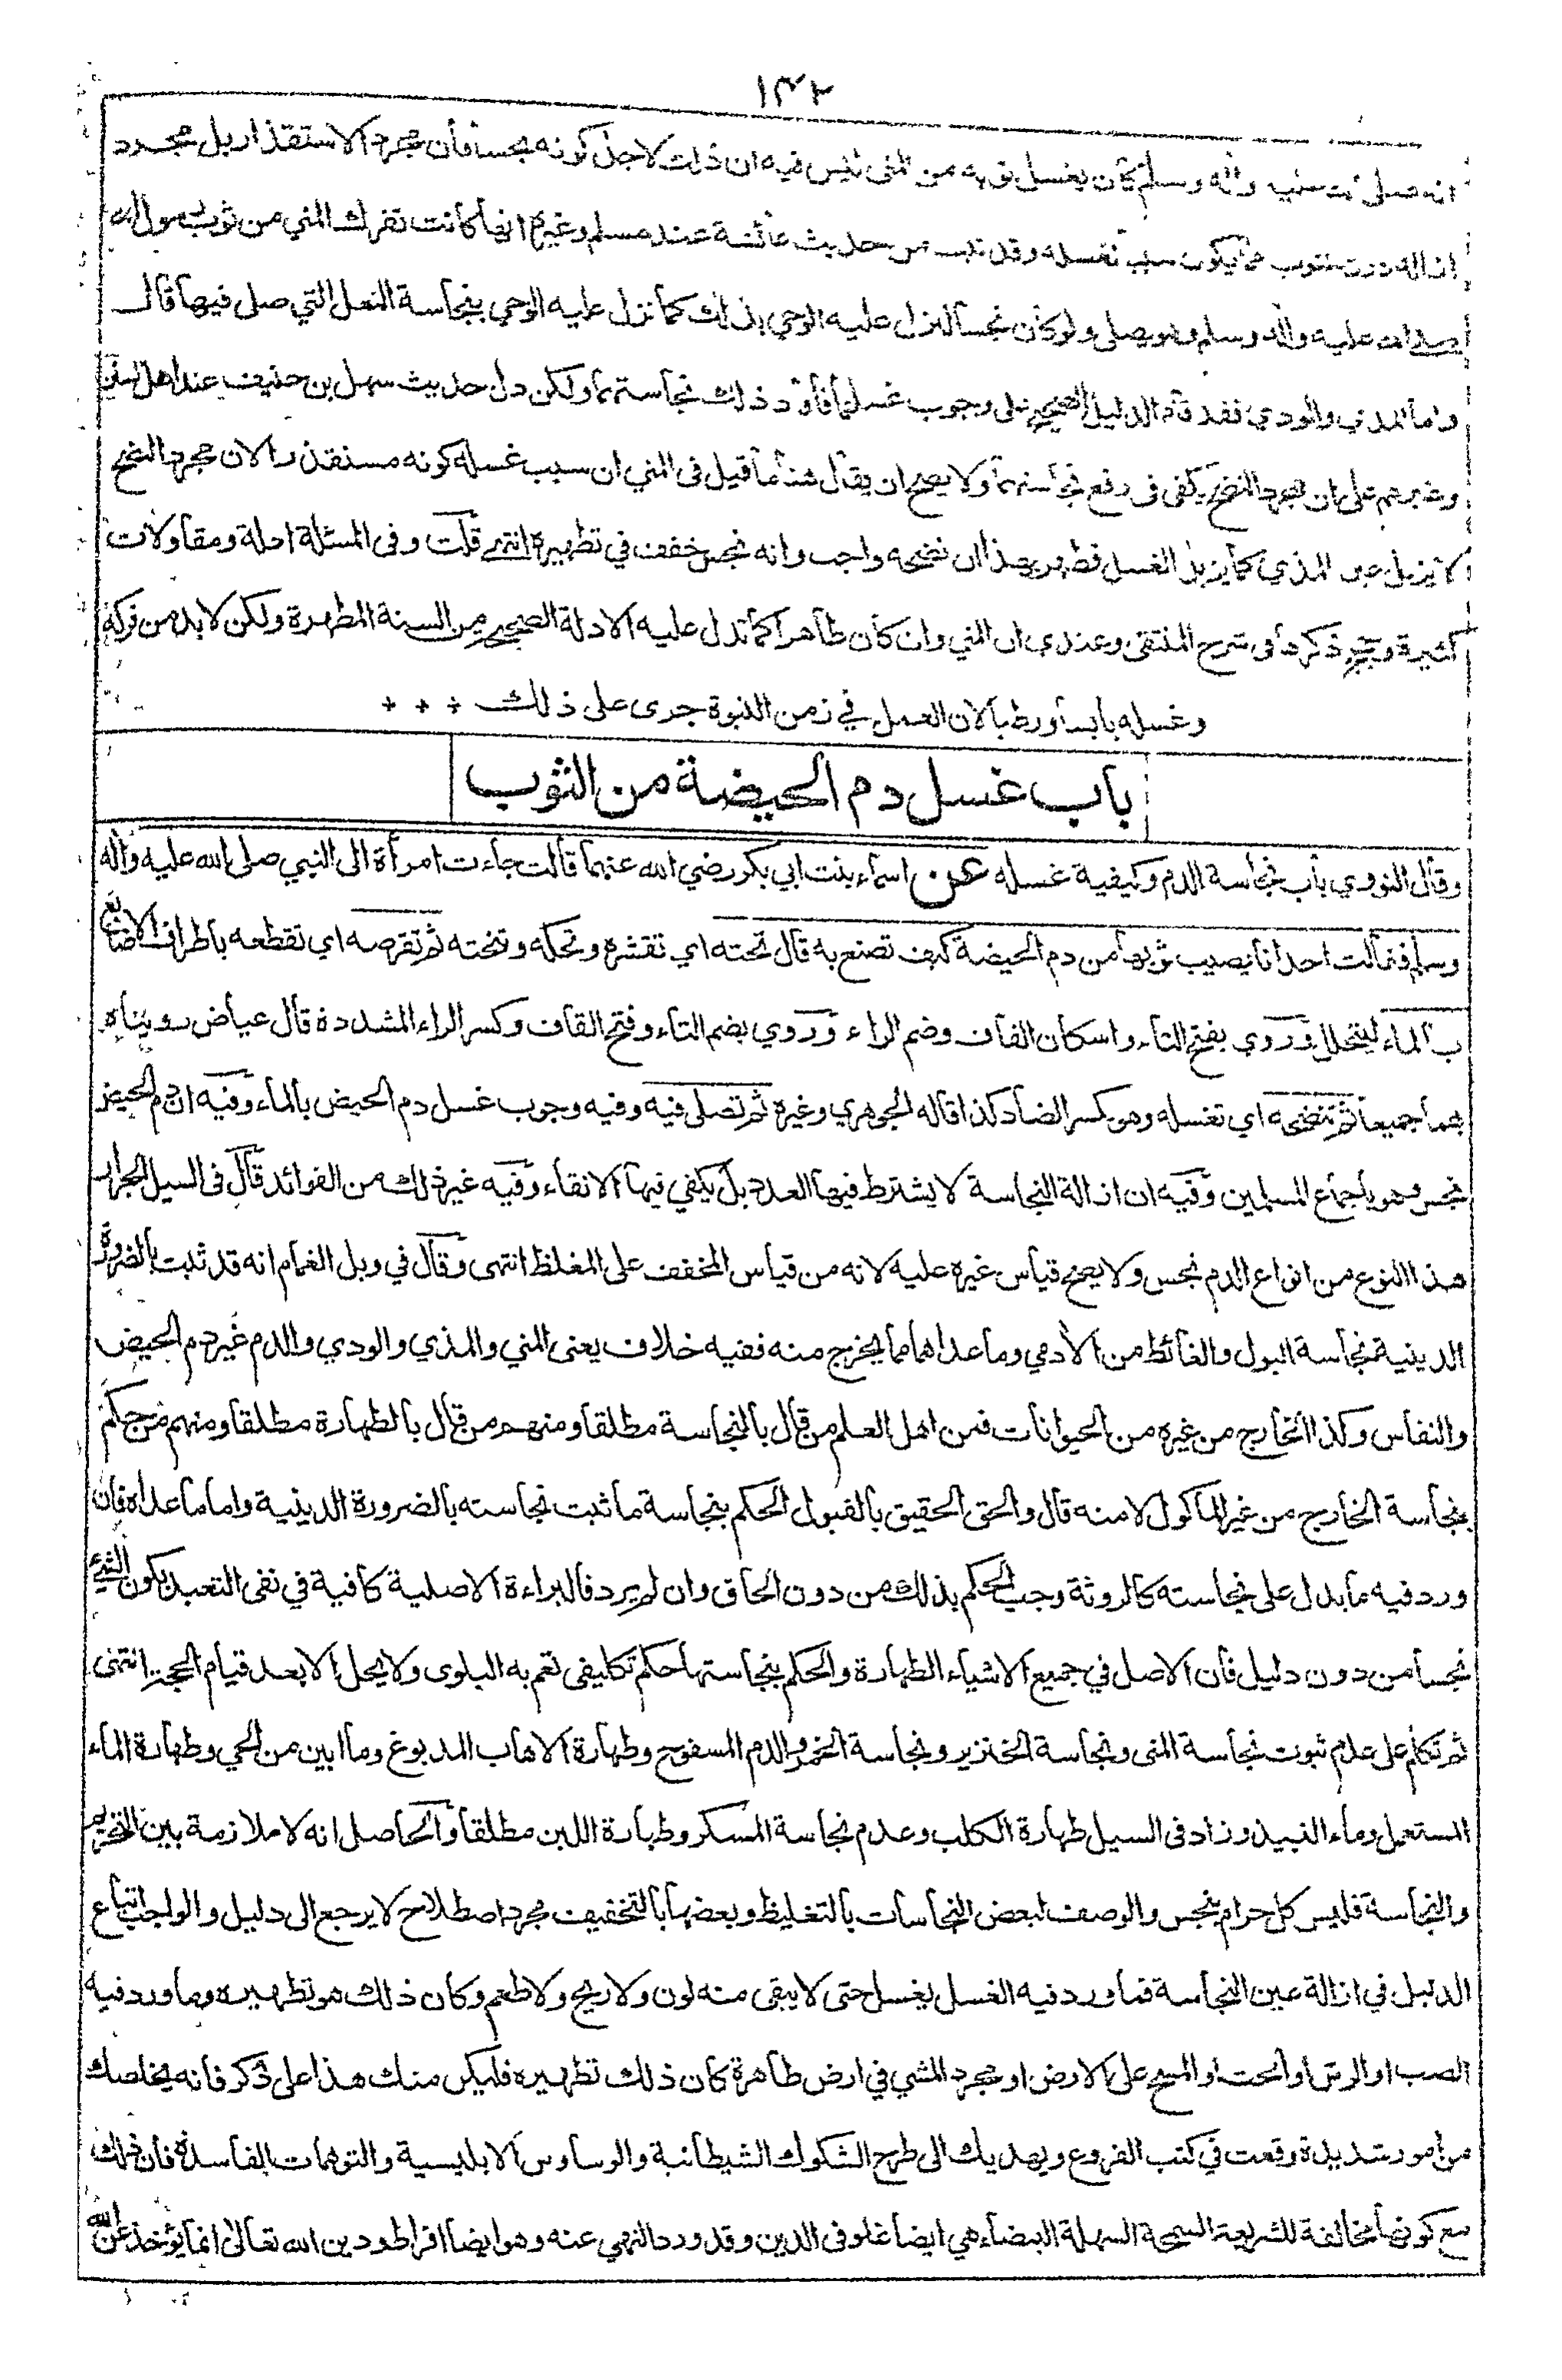 ١٣٢
انه صلى الله عليه وآله وسلم كان يغسل ثوبه من المنى ليس فيه ان ذلك لاجل كونه نجسا فأن مجرد الاستقذار بل مجرد
ازالة درن الثوب مما يكون سببا لغسله وقد ثبت من حديث عائشة عند مسلم وغيره انها كانت تفرك المني من ثوب رسول الله
صلى الله عليه وآله وسلم وهو يصلى ولو كان نجسا لنزل عليه الوحي بذلك كما نزل عليه الوحي بنجاسة النعل التي صلى فيها قال
واما المذي والودي فقد قام الدليل الصحيح على وجوب غسلهما فأفاد ذلك نجاستهما ولكن دل حديث سهل بن حنيف عند اهل السنن
وغيرهم على ان مجرد النضح يكفى فى رفع نجاستهما ولا يصح ان يقال هنا ما قيل فى المني ان سبب غسله كونه مستقذرا لان مجرد النضح
لا يزيل عين المذي كما يزيل الغسل فظهر بهذا ان نضحه واجب وانه نجس خفف في تطهيره انتهى قلت وفى المسئلة ادلة ومقاولات
كثيرة ذكرها فى شرح المنتقى وعندي ان المني وان كان طاهرا كما تدل عليه الادلة الصحيحة من السنة المطهرة ولكن لابد من فركه
وغسله يابسا ورطبا لان العمل في زمن النبوة جرى على ذلك + + +
باب غسل دم الحيضة من الثوب
وقال النووي باب نجاسة الدم وكيفية غسله عن اسماء بنت ابي بكر رضي الله عنهما قالت جاءت امرأة الى النبي صلى الله عليه وآله
وسلم فقالت احدانا يصيب ثوبها من دم الحيضة كيف تصنع به قال تحته اي تقشره وتحكه وتنحته ثم تقرصه اي تقطعه بأطراف الاصابع
بالماء ليتحلل وروي بفتح التاء واسكان القاف وضم الراء وروي بضم التاء وفتح القاف وكسر الراء المشددة قال عياض رويناه
بهما جميعا ثم تنضحه اي تغسله وهو كسر الضاد كذا قاله الجوهري وغيره ثم تصلى فيه وفيه وجوب غسل دم الحيض بالماء وفيه ان دم الحيض
نجس وهو باجماع المسلمين وفيه ان ازالة النجاسة لا يشترط فيها العدد بل يكفي فيها الانقاء وفيه غير ذلك من الفوائد قال فى السيل الجرار
هذا النوع من انواع الدم نجس ولا يصح قياس غيره عليه لانه من قياس المخفف على المغلظ انتهى وقال في وبل الغمام انه قد ثبت بالضرورة
الدينية نجاسة البول والغائط من الأدمي وما عداهما مما يخرج منه ففيه خلاف يعنى المني والمذي والودي والدم غير دم الحيض
والنفاس وكذا الخارج من غيره من الحيوانات فمن اهل العلم من قال بالنجاسة مطلقا ومنهم من قال بالطهارة مطلقا ومنهم من حكم
بنجاسة الخارج من غير المأكول لا منه قال والحق الحقيق بالقبول الحكم بنجاسة ما ثبت نجاسته بالضرورة الدينية واما ما عداه فان
ورد فيه ما يدل على نجاسته كالروثة وجب الحكم بذلك من دون الحاق وان لم يرد فالبراءة الاصلية كافية في نفى التعبد بكون الشئ
نجسا من دون دليل فان الاصل في جميع الاشياء الطهارة والحكم بنجاستها حكم تكليفى تعم به البلوى ولا يحل الا بعد قيام الحجة انتهى
ثم تكلم على عدم ثبوت نجاسة المنى ونجاسة الخنزير ونجاسة الخمر والدم المسفوح وطهارة الاهاب المدبوغ وما ابين من الحي وطهارة الماء
المستعمل وماء النبيذ وزاد فى السيل طهارة الكلب وعدم نجاسة المسكر وطهارة اللبن مطلقا والحاصل انه لا ملازمة بين التحريم
والنجاسة فليس كل حرام بنجس والوصف لبعض النجاسات بالتغليظ وبعضها بالتخفيف مجرد اصطلاح لا يرجع الى دليل والواجب اتباع
الدليل في ازالة عين النجاسة فما ورد فيه الغسل يغسل حتى لا يبقى منه لون ولا ريح ولا طعم وكان ذلك هو تطهيره وما ورد فيه
الصب او الرش او الحت او المسح على الارض او مجرد المشي في ارض طاهرة كان ذلك تطهيره فليكن منك هذا على ذكر فانه يخلصك
من امور شديدة وقعت في كتب الفروع ويهديك الى طرح الشكوك الشيطانية والوساوس الابليسية والتوهمات الفاسدة فان ذلك
مع كونها مخالفة للشريعة السمحة السهلة البيضاء هي ايضا غلو فى الدين وقد ورد النهي عنه وهو ايضا افراط ودين الله تعالى انما يؤخذ عن الله